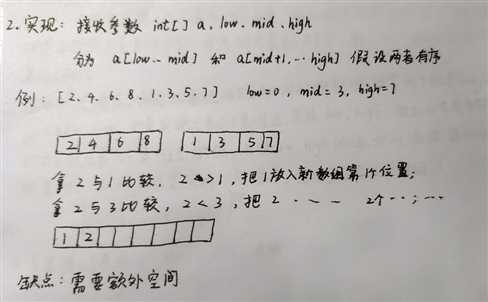 2.实现: 接收参数 int[] a、low、mid、high
分为 a[low…mid] 和 a[mid+1,…high] 假设两者有序
例: [2、4、6、8、1、3、5、7] low=0, mid=3, high=7
2 4 6 8 1 3 5 7
拿2与1比较, 2>1, 把1放入新数组第1个位置;
拿2与3比较, 2<3, 把2…… 2个…;…
1 2
缺点: 需要额外空间